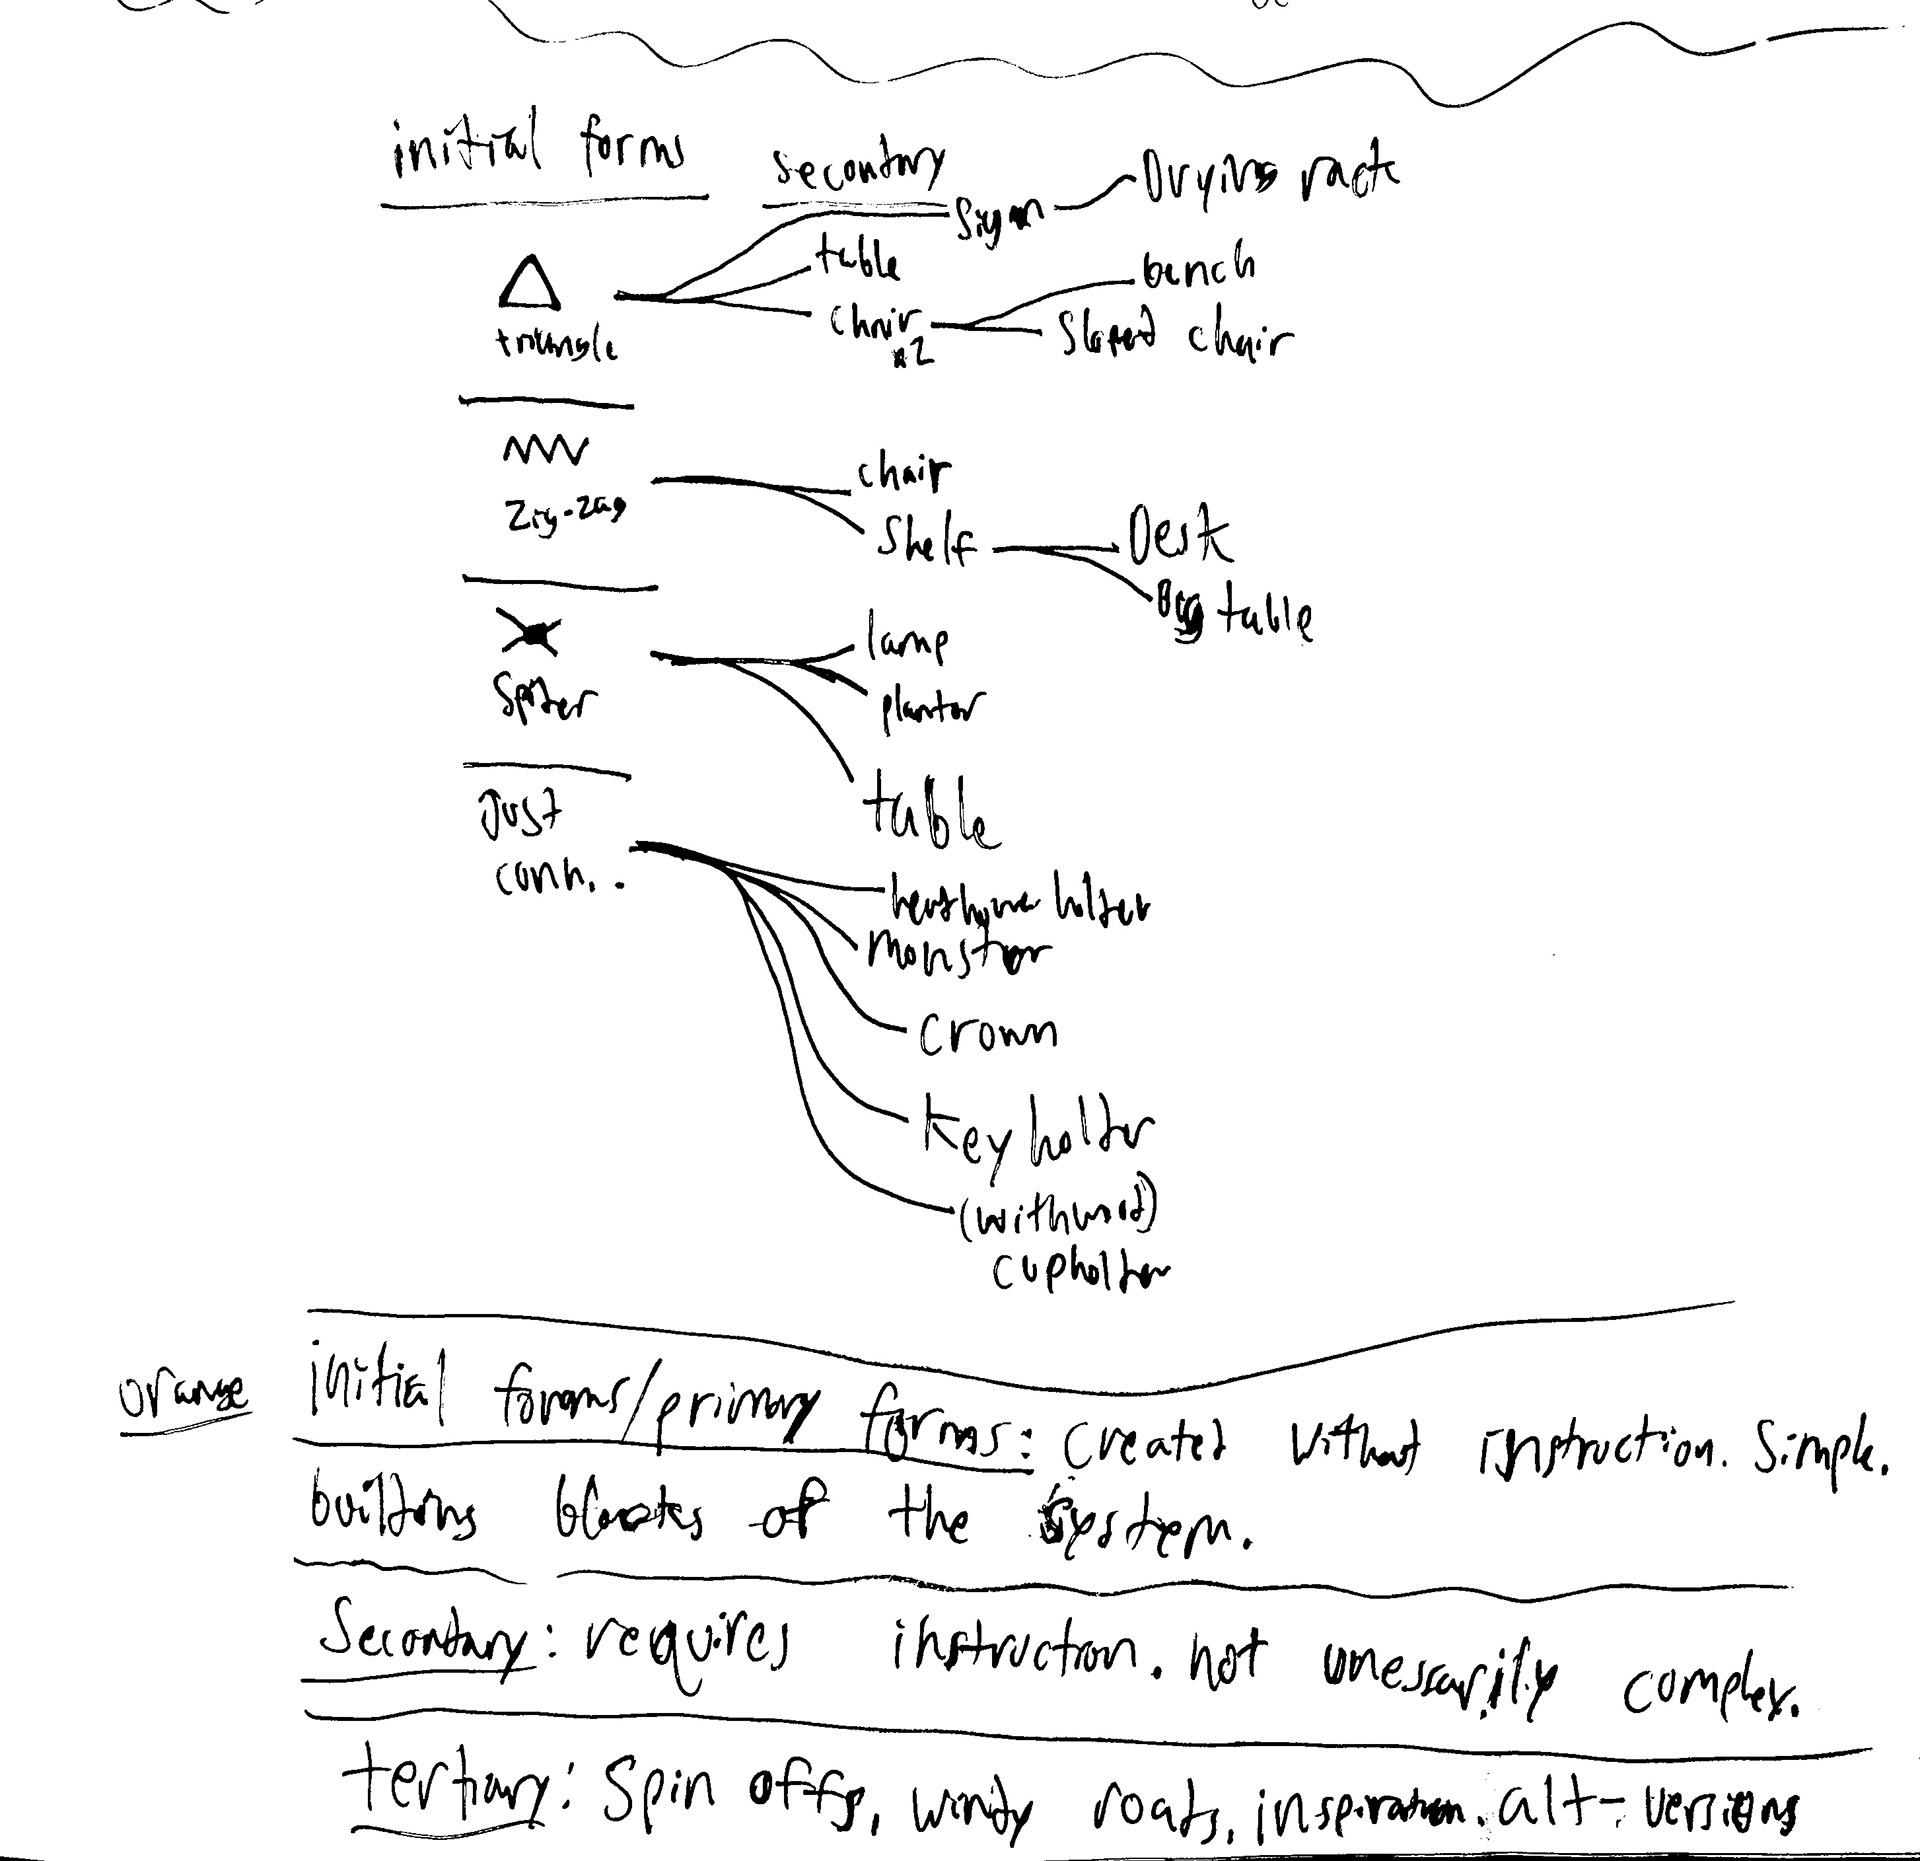 initial forms
secondary
Sign
Drying rack
table
bench
chair
x2
Sloped chair
triangle
chair
Zig-zag
Shelf
Desk
Big table
lamp
Spider
planter
table
Just
conn..
headphone holder
monster
crown
Key holder
(with wood)
cupholder
orange
initial forms/primary forms: created without instruction. Simple.
building blocks of the system.
Secondary: requires instruction. not unessarily complex.
tertiary: Spin offs, windy roads, inspiration. alt-versions